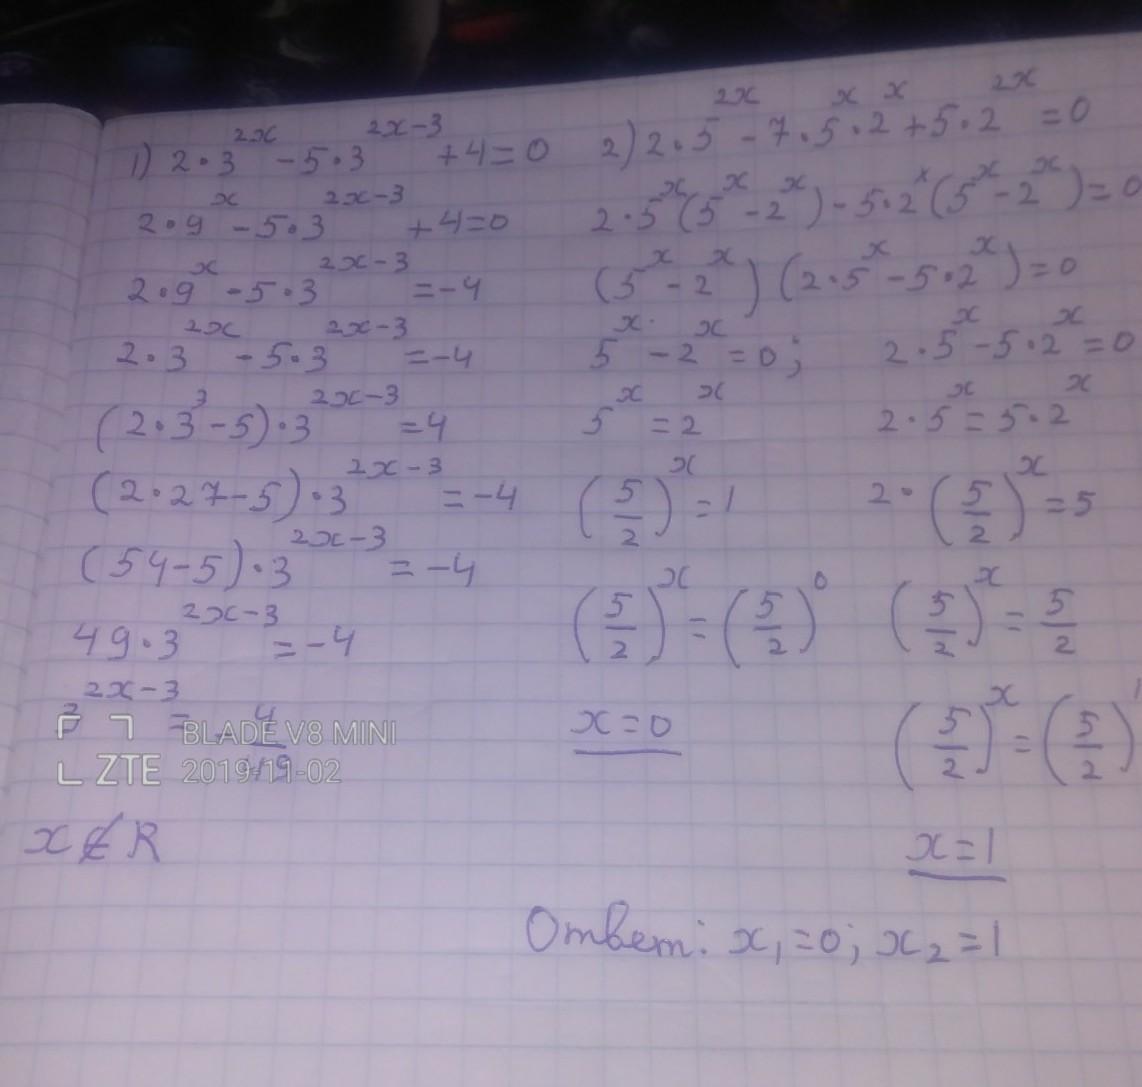 1) 2·3^{2x} - 5·3^{2x-3} + 4 = 0
2·9^{x} - 5·3^{2x-3} + 4 = 0
2·9^{x} - 5·3^{2x-3} = -4
2·3^{2x} - 5·3^{2x-3} = -4
(2·3^{3} - 5)·3^{2x-3} = 4
(2·27 - 5)·3^{2x-3} = -4
(54 - 5)·3^{2x-3} = -4
49·3^{2x-3} = -4
3^{2x-3} = -4/49
x ∉ R
2) 2·5^{2x} - 7·5^{x}·2^{x} + 5·2^{2x} = 0
2·5^{x}(5^{x} - 2^{x}) - 5·2^{x}(5^{x} - 2^{x}) = 0
(5^{x} - 2^{x})(2·5^{x} - 5·2^{x}) = 0
5^{x} - 2^{x} = 0; 2·5^{x} - 5·2^{x} = 0
5^{x} = 2^{x} 2·5^{x} = 5·2^{x}
(5/2)^{x} = 1 2·(5/2)^{x} = 5
(5/2)^{x} = (5/2)^{0} (5/2)^{x} = 5/2
x = 0 (5/2)^{x} = (5/2)^{1}
x = 1
Ответ: x₁ = 0; x₂ = 1
BLADE V8 MINI
ZTE 2019-11-02